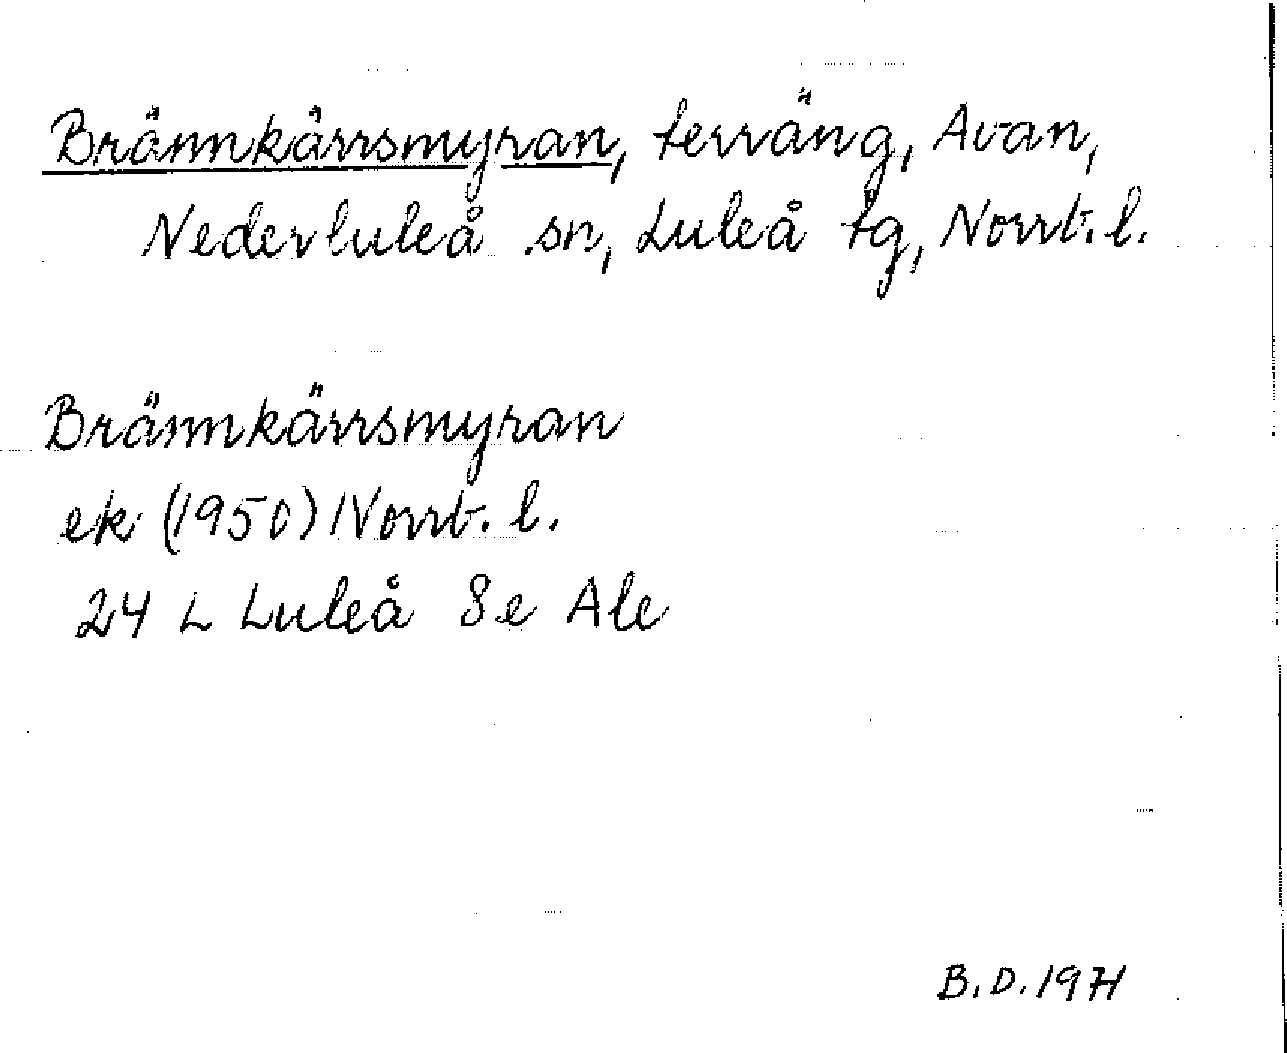 Brännkärrsmyran, terräng, Avan,
Nederluleå sn, Luleå tg, Norrb. l.
Brännkärrsmyran
ek (1950) Norrb. l.
24 L Luleå 8e Ale
B.D. 1971